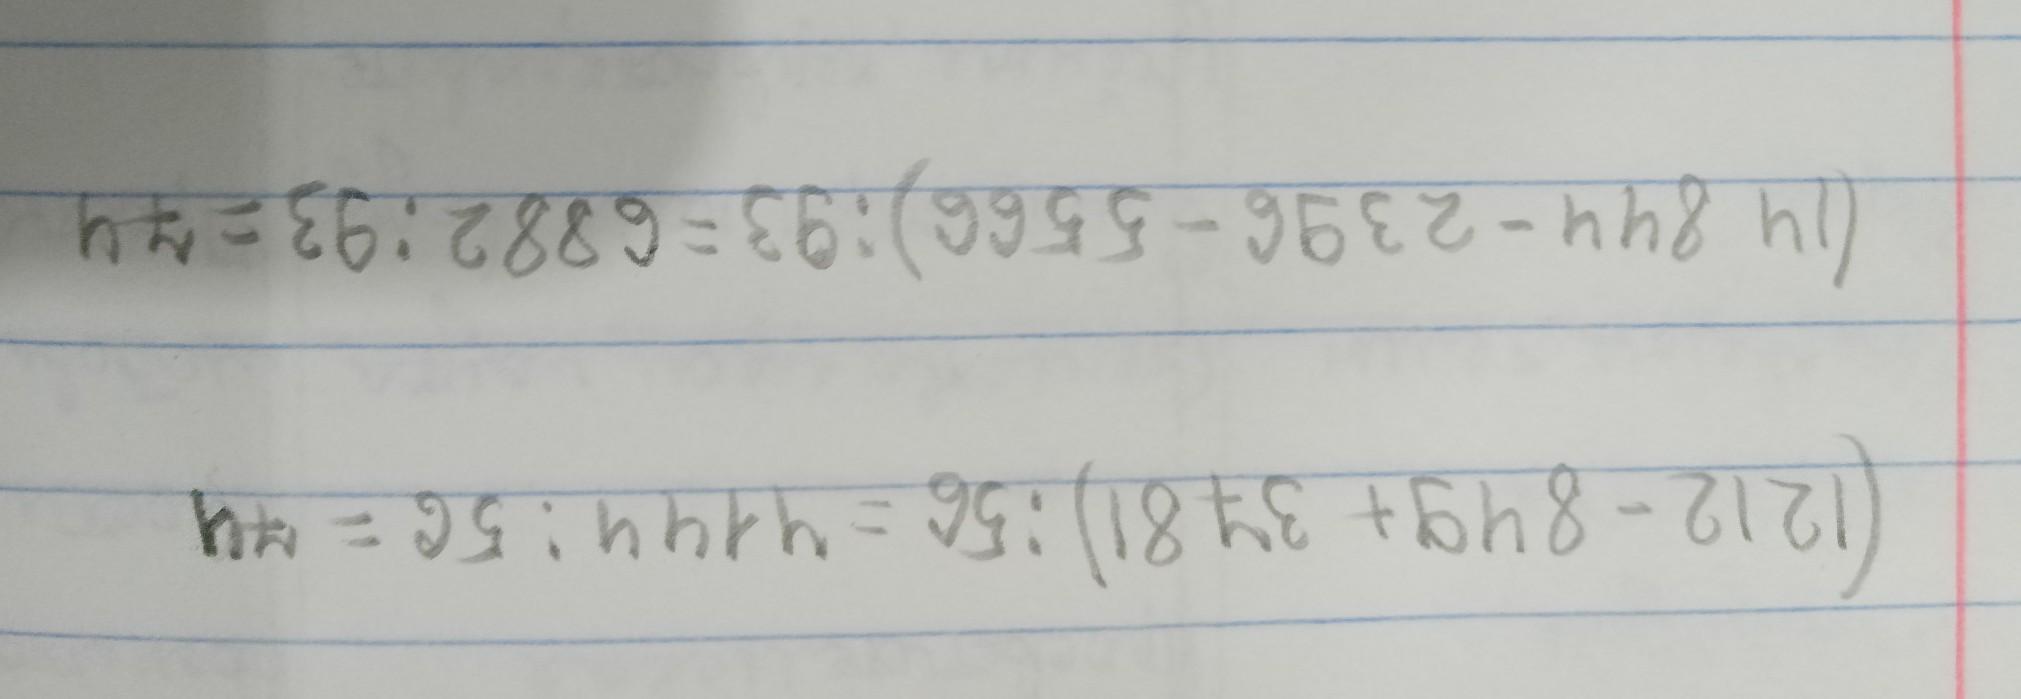 (1212 - 849 + 3781) : 56 = 4144 : 56 = 74
(14 844 - 2396 - 5566) : 93 = 6882 : 93 = 74